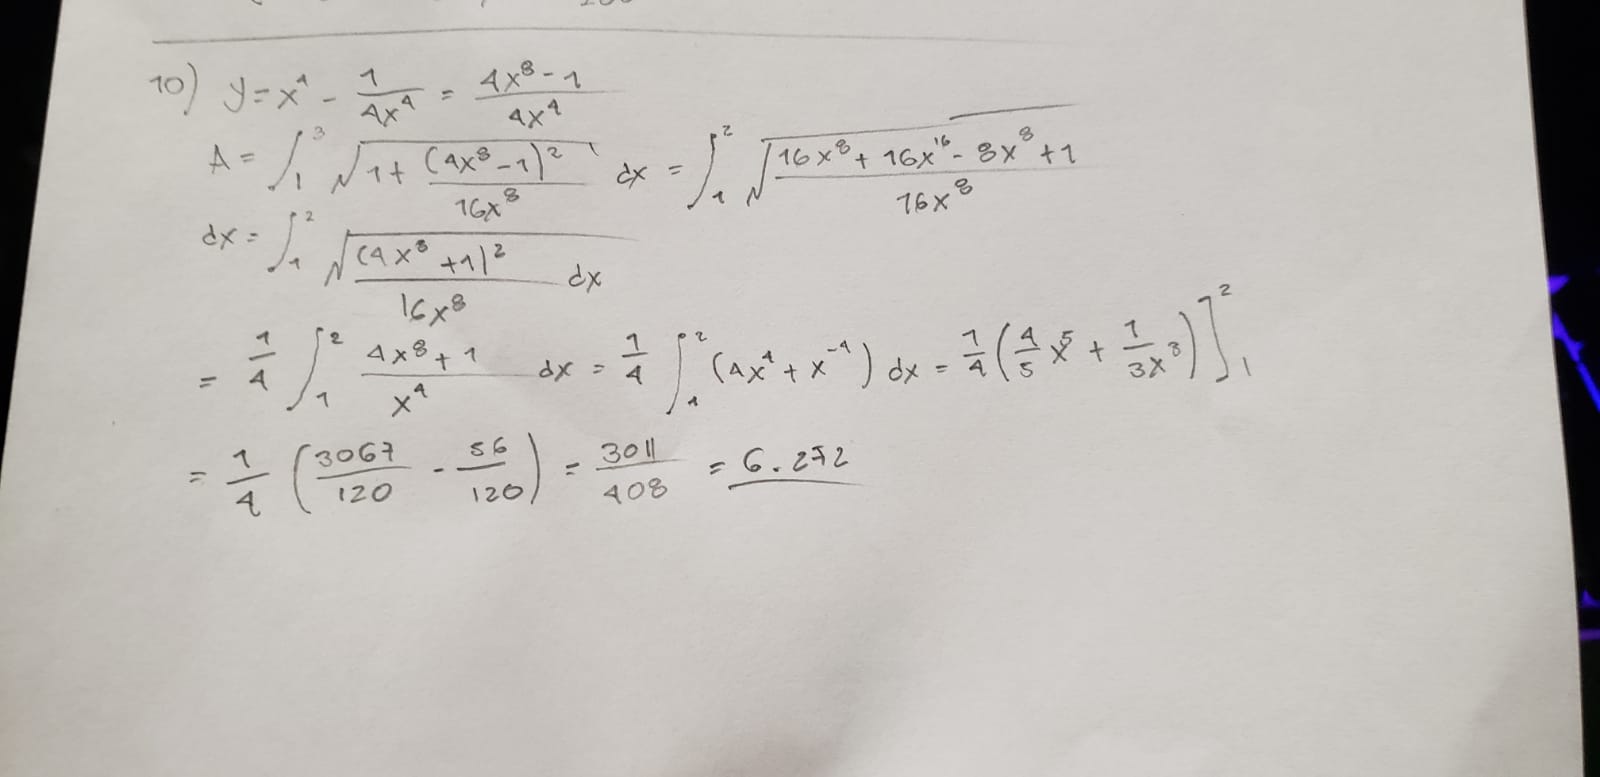 10) y = x⁴ - 1/4x⁴ = 4x⁸ - 1/4x⁴
A = ∫₁³ √1 + (4x⁸ - 1)²/16x⁸ dx = ∫₁² √16x⁸ + 16x¹⁶ - 8x⁸ + 1/16x⁸
dx = ∫₁² √(4x⁸ + 1)²/16x⁸ dx
= 1/4 ∫₁² 4x⁸ + 1/x⁴ dx = 1/4 ∫₁² (4x⁴ + x⁻⁴) dx = 1/4 (4/5 x⁵ + 1/3x³)]₁²
= 1/4 (3067/120 - 56/120) = 3011/408 = 6.272